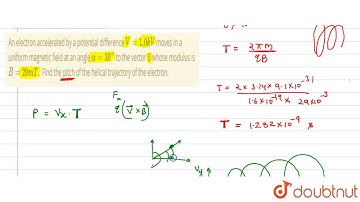 An electron accelerated by a potential difference V = 1.0kV moves in a
uniform magnetic field at an angle α = 30° to the vector B whose modulus is
B = 29mT. Find the pitch of the helical trajectory of the electron.
T = 2πm / qB
T = 2 × 3.14 × 9.1×10⁻³¹ / 1.6×10⁻¹⁹ × 29×10⁻³
T = 1.282 ×10⁻⁹ s
Fm
q(V × B)
P = Vx · T
doubtnut